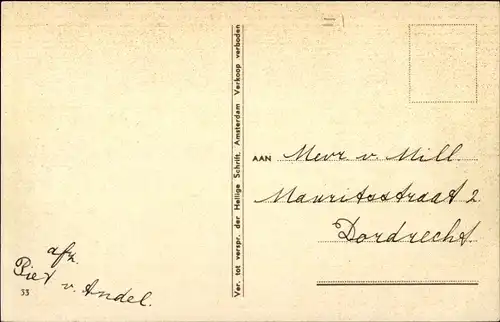 Ver. tot verspr. der Heilige Schrift, Amsterdam Verkoop verboden
AAN Mevr v. Mill.
Mauritsstraat 2
Dordrecht.
afz.
Piet
v. Andel.
33